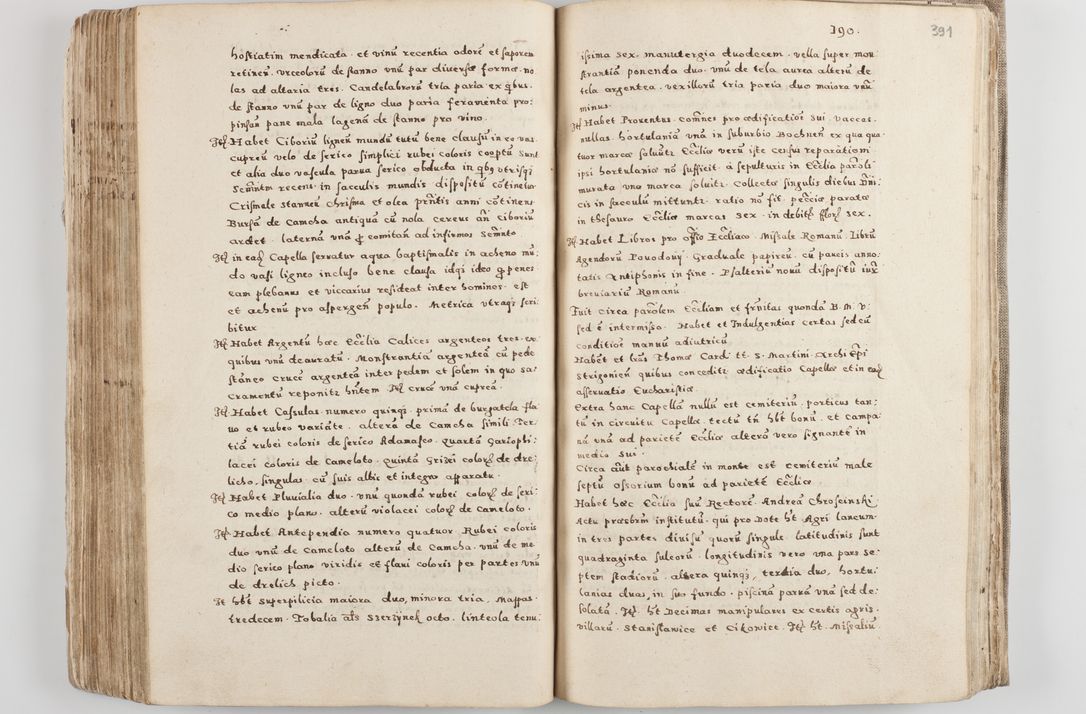 hostiatim mendicata · et vinū recentia odorē et saporem
retinen̄. Vrceolorū de stanno vnū par diversæ formæ · no
las ad altaria tres. Candelabrorū tria paria ex q̄bus ·
de stanno vnū par de ligno duo paria feramenta pro:
pinsan̄ pane mala lagena de stanno pro vino ·
Itē Habet Ciboriū ligneū mundū tutū bene clausū in eo vas
cupreū velo de serico simplici rubei coloris cooptū sunt
et alia duo vascula parua serico obducta in q̄bg vtrisq;
Semn̄tm recens in sacculis mundis dispositū cōtinetur
Crismele stanneū Chrisma et olea prn̄tis anni cōtinens
Bursā de Camcha antiquā cū nola cereus an̄ Ciboriū
ardet · laterna vnā ꝓ comitan̄ ad infirmos Semn̄to
Itē in eaē Capella servatur aqua baptismalis in acheno mū:
do vasi ligneo incluso bene clausa idq; ideo ꝙ penes
eam plebanus et viccarius resideat inter homines · est
et achenū pro aspergen̄ populo · Metrica vtraq; scri
bitur
Itē Habet Argentū hæc Eccl̄ia Calices argenteos tres · ex
quibus vnū deauratū · Monstrantiā argenteā cū pede
stāneo crucē argenteā inter pedem et solem in quo sa:
cramentū reponitz hn̄tem Itē crucē vnā cupreā ·
Itē Habet Casulas numero quinq; · primā de burgatela fla
uo et rubeo variāte · alterā de Camcha simili Ter:
tiā rubei coloris de serico Adamasco · quartā gariophi:
lacei coloris de Cameloto · quintā Grizei colorē de dre:
licho · singulas cū suis albis et integro apparatu ·
Itē Habet Pluuialia duo · vnū quondā rubei colorē de seri:
co medio plano · alterū violacei colorē de Cameloto ·
Itē Habet Antependia numero quatuor · Rubei coloris
duo vnū de Cameloto alterū de Camcha · vnū de me
dio serico plano viridis et flaui coloris per partes vnū
de drelich picto ·
It hēt superpilicia maiora duo, minora tria · Mappas ·
tredecem · Tobalia al̄s Szerzÿnek octo · linteola tenu:
190.
391
issima sex · manutergia duodecem · vella super mon
strantiā ponenda duo · vnū de tela aurea alterū de
tela argentea · vexillorū tria paria duo maiora vnū
minus ·
Itē Habet Prouentus · com̄nes pro ædificatiōe sui · vaccas ·
nullas · hortulaniā vnā in suburbio Bochnen̄ ex qua qua
tuor marcæ soluūtr Eccl̄iæ verū iste census reparationi
ipsi hortulaniæ nō sufficit · a sepulturis in Eccl̄ia parōli
murata vna marca soluitr · Collecta singulis diebus Dn̄i
cis in sacculū mittuntr · ratio nō fit · peccūiæ paratæ
in thesauro Eccl̄iæ marcas sex · in debitz florē sex ·
Itē Habet Libros pro off̄io Eccl̄iaco · Missale Romanū · Librū
Agendorū Povodowÿ · Graduale papireū · cū paucis anno:
tatis Antiphonis in fine · Psalteriū nouū dispositū iux̄
breuiariū Romanū ·
Fuit circa parōlem Eccl̄iam et fr̄nitas quondā B · M · V ·
sed ē intermissa · Habet et Indulgentias certas sed cū
conditiōe manuū adiutriciū
Habēt et lrās Thomæ Card: tt S · Martini · Archi Epī
Strigonien̄ quibus concedit ædificatio Capellæ et in eaē
asseruatio Eucharistiæ
Extra hanc Capellā nullū est cemiteriū, porticus tan:
tū in circuitu Capellæ · tectū tn̄ hēt bonū · et campa:
nā vnā ad parietē Eccl̄iæ alterā vero signantē in
medio sui ·
Circa aūt parochialē in monte est cemiteriū male
septū ossorium bonū ad parietē Eccl̄iæ
Habet hæc Eccl̄ia suū Rectorē · Andreā Chroscinski ·
Actu præsbrm̄ institutū · qui pro Dote hēt Agri laneum
in tres partes diuisū quorū singulæ latitudinis sunt
quadraginta sulcorū · longitudinis vero vna pars se:
ptem stadiorū altera quinq; tertia duo, hortu:
lanias duas, in suo fundo · piscinā paruā vnā sed de:
solatā · Itē hēt Decimas manipulares ex certis agris ·
villarū · Stanisławice et Cikowice · Itē hēt · Missaliū ·